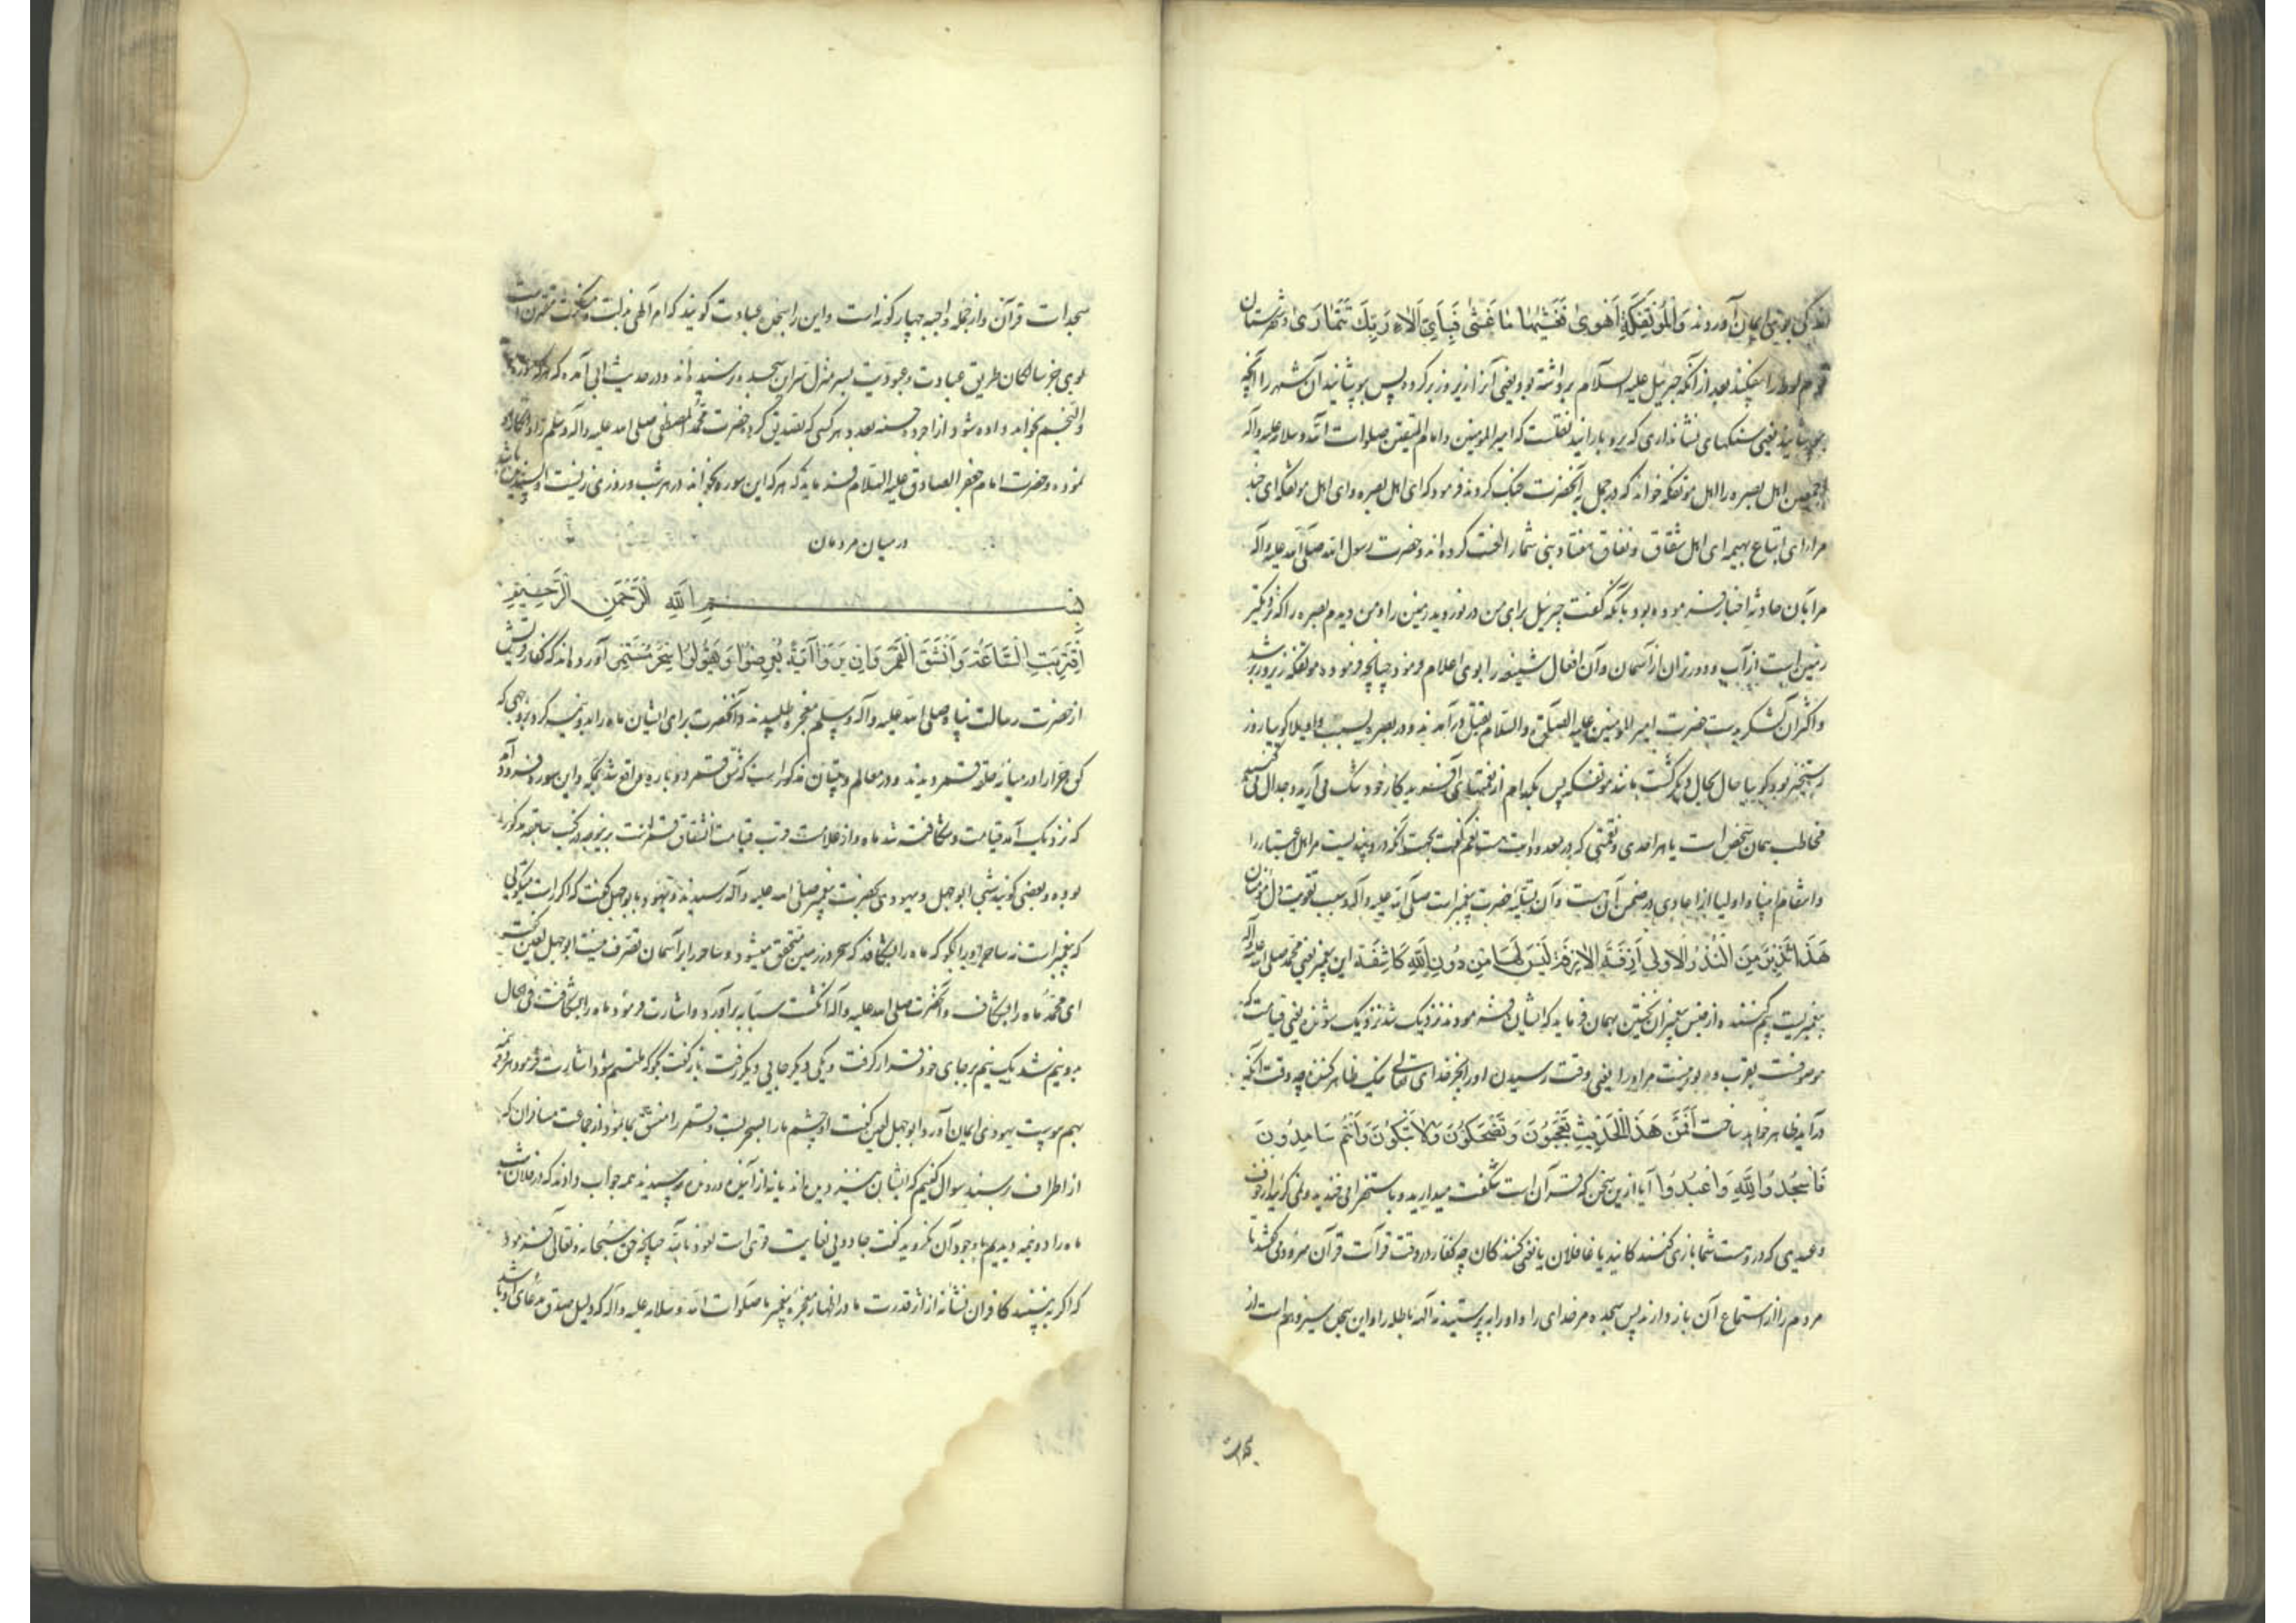 اندکی بوی ایمان آوردند وَالْمُؤْتَفِكَةَ أَهْوَىٰ فَغَشّٰیهَا مَا غَشّٰی فَبِأَیِّ آلَاءِ رَبِّكَ تَتَمَارَىٰ و شهرستان
قوم لوط را بیفکند بعد از آنکه جبرئیل علیه السلام برداشته بود یعنی آنرا زیر و زبر کرد پس بپوشانید آن شهر را آنچه
بپوشانید یعنی سنکهای نشانداری که برو بارانید نقلست که امیرالمومنین و امام المتقین صلوات الله و سلامه علیه وآله
اجمعین اهل بصره را اهل مؤتفکه خواند که در جمل با آنحضرت جنک کردند فرمود که ای اهل بصره و ای اهل مؤتفکه ای جند
مراة ای اتباع بهیمه ای اهل شقاق و نفاق هفتاد نبی شما را لعنت کرده‌اند و حضرت رسول الله صلی الله علیه وآله
مرا بآن حادثه اخبار فرموده بود بآنکه گفت جبرئیل برای من در نوردید زمین را و من دیدم بصره را که نزدیکتر
زمین است از آب و دورتر آن از آسمان و آن افعال شنیعه را بوی اعلام فرمود چنانچه فرموده مؤتفکه زیر و زبر شد
و اکثر آن لشکر بدست حضرت امیرالمومنین علیه الصلوة والسلام بقتل در آمدند و در بصره بسبب واویلا کویا روز
رستخیز بود کویا حال بحال دیکر کشت مانند مؤتفکه پس بکدام از نعمتهای آفریدکار خود شک می آرید و جدال میکنید
مخاطب همان شخص است یا هر احدی
و انتقام انبیا و اولیا از اعادی در ضمن آن هست و آن تسلیه حضرت پیغمبر است صلی الله علیه وآله و سبب تقویت دل مؤمنان
هَذَا نَذِیرٌ مِنَ النُّذُرِ الْاُولٰی اَزِفَتِ الْاٰزِفَةُ لَیْسَ لَهَا مِنْ دُونِ اللّٰهِ کَاشِفَةٌ این پیغمبر یعنی محمد صلی الله علیه وآله
پیغمبریست بیم کننده از جنس پیغمبران نخستین بهمان فرماید که ایشان فرمودند نزدیک شد نزدیک شونده یعنی قیامت که
موصوفست بقرب و نیست مر او را یعنی وقت رسیدن او را بجز خدای تعالی هیچ ظاهر کننده چه وقت آنکه
در آید ظاهر خواهد ساخت اَفَمِنْ هَذَا الْحَدِیثِ تَعْجَبُونَ وَتَضْحَکُونَ وَلَا تَبْکُونَ وَاَنْتُمْ سَامِدُونَ
فَاسْجُدُوا لِلّٰهِ وَاعْبُدُوا آیا ازین سخن که قرآن است شکفت میدارید و باستهزا می خندید و نمی کریید از خوف
وعیدی که در وست و شما بازی کنندکانید یا غافلان یا تغنی کنندکان چه کفار در وقت قرآت قرآن سرود می کشند تا
مردم را از استماع آن باز دارند پس سجده مر خدای را و او را بپرستید نه آلهه باطله را و این سجده سیزدهم است از
سجدات قرآن و از جمله واجبه چهار کونه است و این را سجده عبادت کویند
بوی جز سالکان طریق عبادت و عبودیت بسر منزل سر این سجده نرسیده اند و در حدیث ابی آمده که هر که سوره
والنجم بخواند داده شود از اجر ده حسنه بعدد هر کسی که تصدیق کرد حضرت محمد المصطفی صلی الله علیه وآله وسلم را و انکار او
نموده و حضرت امام جعفر الصادق علیه السلام فرماید که هر که این سوره بخواند در هر شب و روزی زیست او پسندیده باشد
در میان مردمان
بسم الله الرحمن الرحیم
اِقْتَرَبَتِ السَّاعَةُ وَانْشَقَّ الْقَمَرُ وَاِنْ یَرَوْا اٰیَةً یُعْرِضُوا وَیَقُولُوا سِحْرٌ مُسْتَمِرٌّ آورده‌اند که کفار قریش
از حضرت رسالت پناه صلی الله علیه وآله وسلم معجزه طلبیدند و آنحضرت برای ایشان ماه را بدو نیمه کرد بوجهی که
کوه حرا را در میانه هر دو قمر دیدند و در معالم و تبیان مذکور است که شق قمر دو باره واقع شد بمکه و این سوره فرود آمد
که نزدیک آمد قیامت و شکافته شد ماه و از علامت قرب قیامت انشقاق قمر است
بوده و بعضی کویند شبی ابوجهل و یهودی بحضرت پیغمبر صلی الله علیه وآله رسیدند و یهود با ابوجهل گفت که اکر راست میکوئی
که پیغمبر است نه ساحر او را بکو که ماه را بشکافد که سحر در زمین متحقق میشود و ساحر را بر آسمان تصرف نیست ابوجهل لعین گفت
ای محمد ماه را بشکاف و آنحضرت صلی الله علیه وآله انکشت سبابه برآورد و اشارت فرمود ماه را بشکافت فی الحال
بدو نیم شد یک نیم بر جای خود قرار کرفت و یکی دیکر جایی دیکر رفت باز گفت بکو که ملتئم شود اشارت فرمود هر دو نیمه
بهم پیوست یهودی ایمان آورد ابوجهل لعین گفت او چشم ما را بسحر بست و قمر را منشق بما نمود از جماعت مسافران که
از اطراف رسند سوال کنیم که ایشان نیز دیده‌اند یا نه از آینده و رونده پرسیدند همه جواب دادند که در فلان شب
ماه را دو نیمه دیدیم با وجود آن نکرویدند گفت جادویی بغایت قوی است نعوذ بالله چنانچه حق سبحانه و تعالی فرمود
که اکر ببینند کافران نشانه از آثار قدرت ما در اظهار معجزه پیغمبر ما صلوات الله و سلامه علیه وآله که دلیل صدق مدعای او باشد